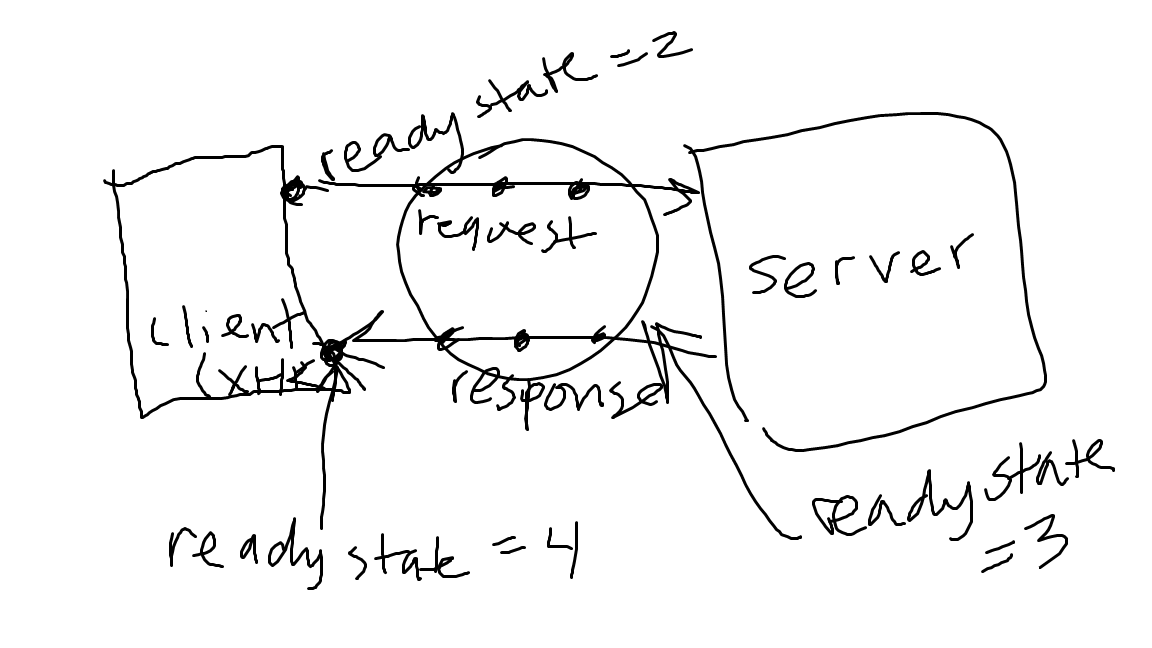 ready state = 2
request
server
client
(XHR)
response
ready state
= 3
ready state = 4